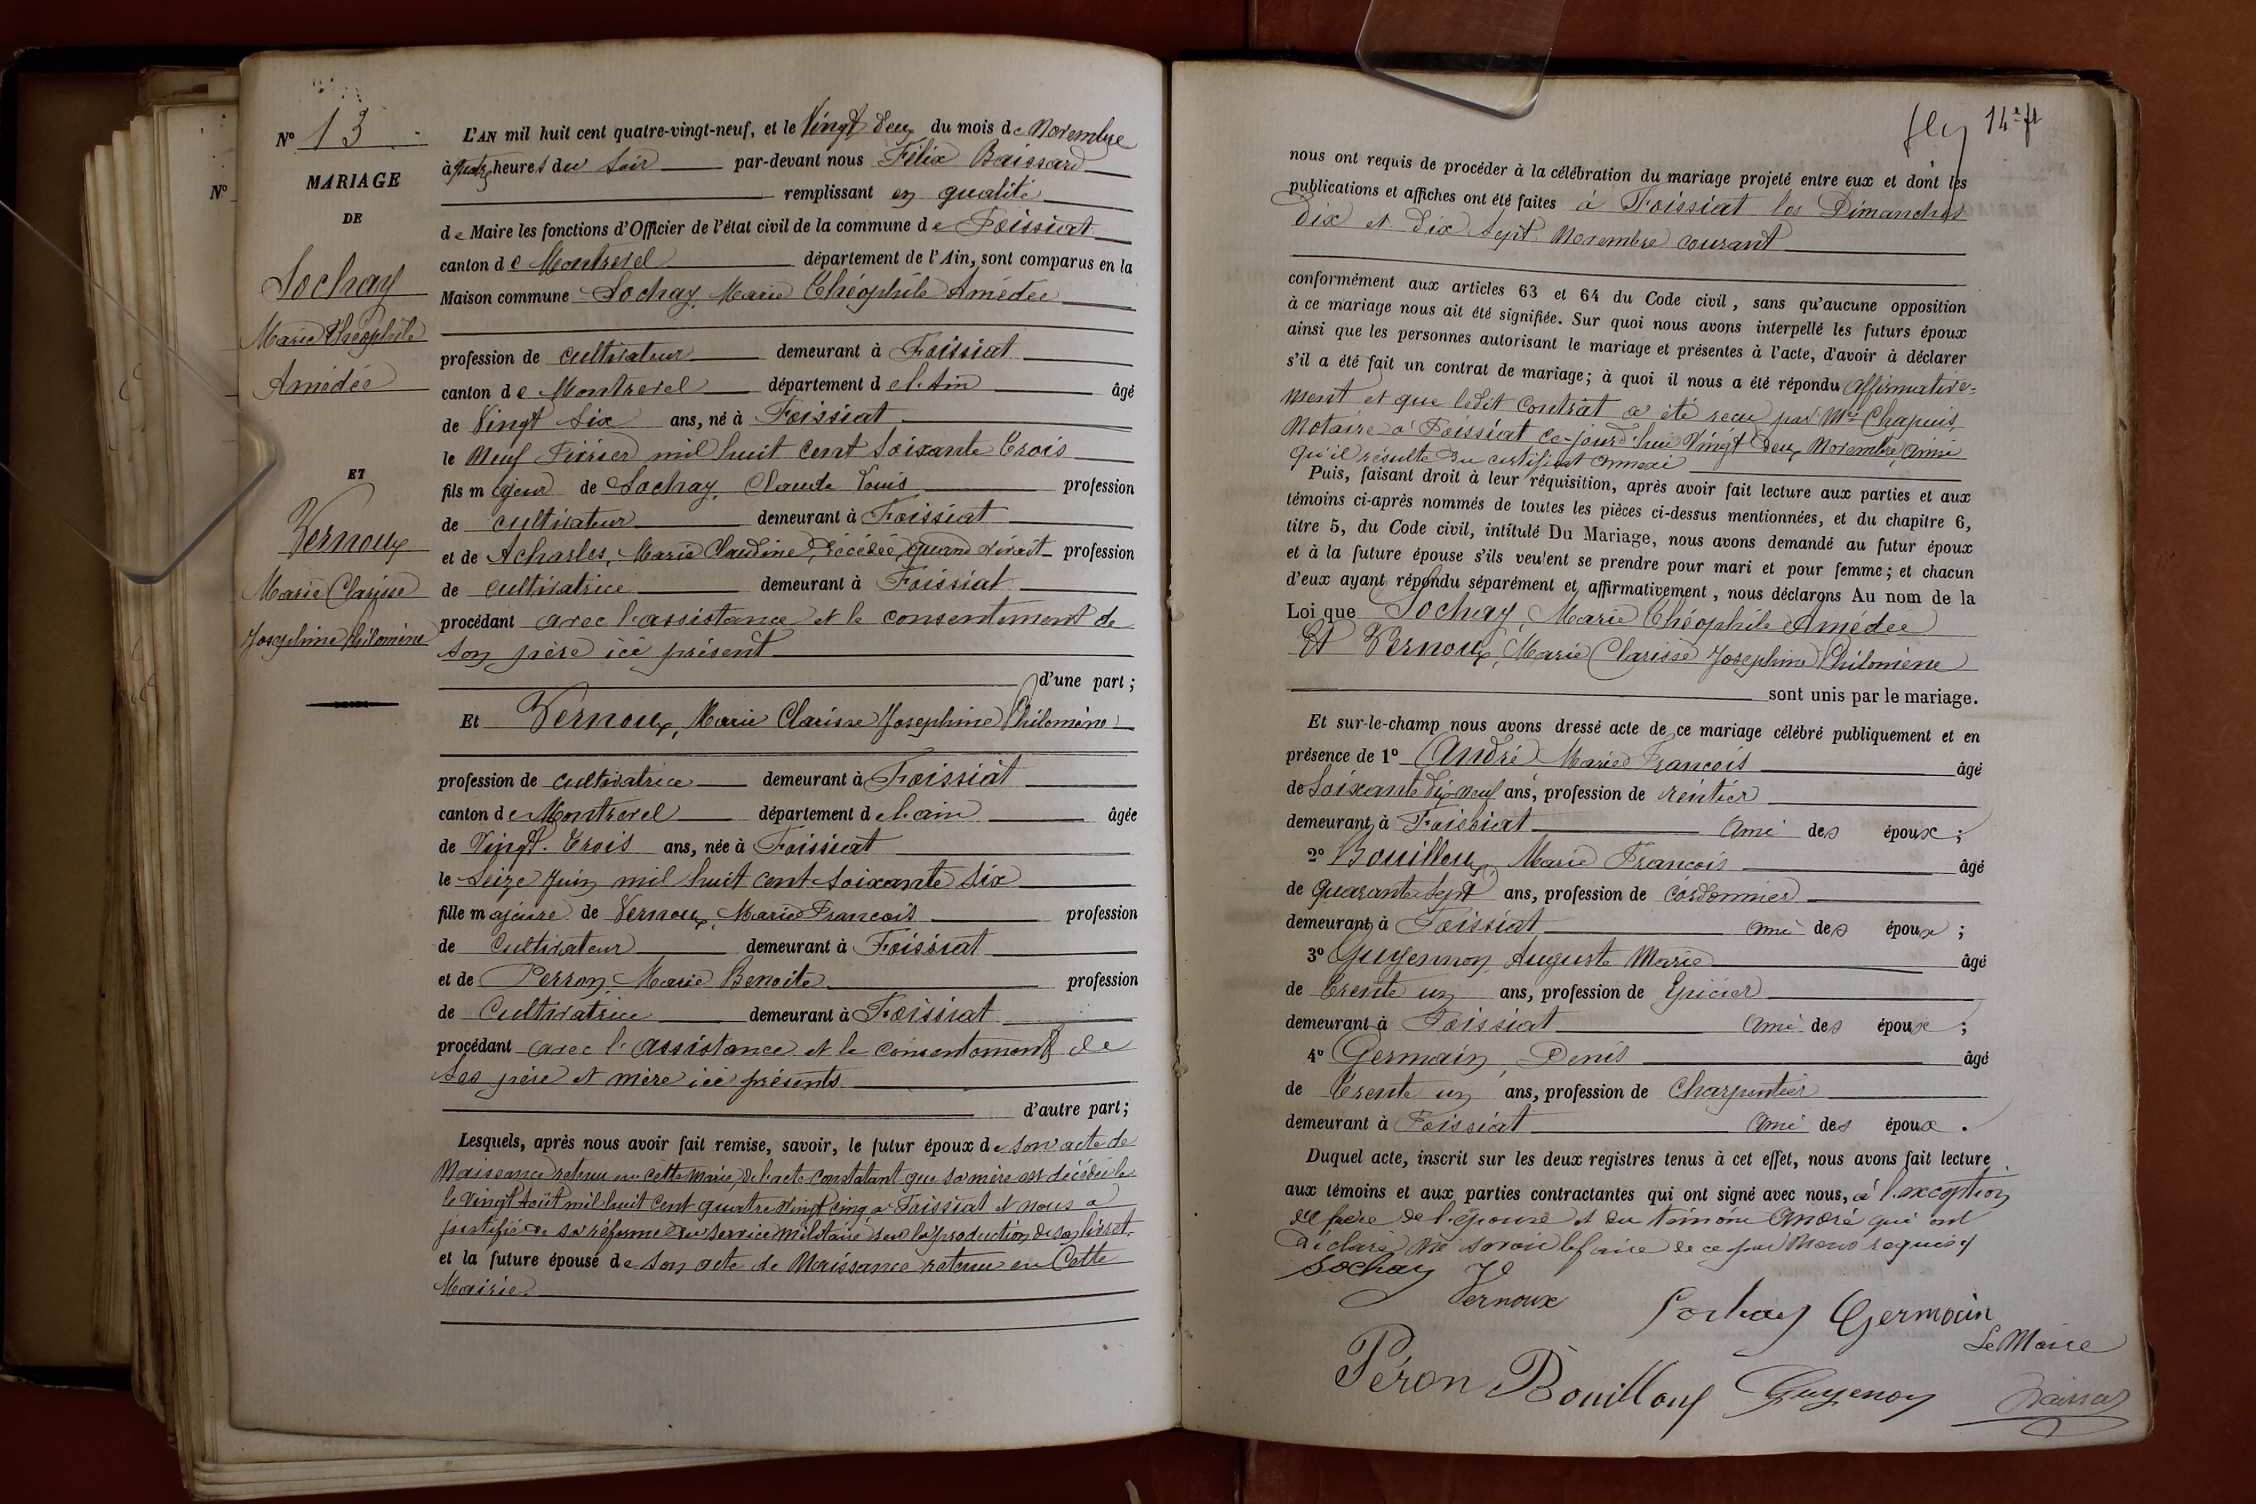 N° 13
MARIAGE
DE
Sochay
Marie Théophile
Amédée
ET
Vernoux
Marie Clarisse
Josephine Philomène
N°
L'AN mil huit cent quatre-vingt-neuf, et le Vingt deux du mois de Novembre
à quatre heures du soir par-devant nous Félix Baissard
remplissant en qualité
de Maire les fonctions d'Officier de l'état civil de la commune de Foissiat
canton de Montrevel département de l'Ain, sont comparus en la
Maison commune Sochay, Marie Théophile Amédée
profession de cultivateur demeurant à Foissiat
canton de Montrevel département de l'Ain âgé
de Vingt Six ans, né à Foissiat
le Neuf Février mil huit cent Soixante Trois
fils majeur de Sochay, Claude Louis profession
de cultivateur demeurant à Foissiat
et de Acharles, Marie Claudine, décédée, quand vivait profession
de cultivatrice demeurant à Foissiat
procédant avec l'assistance et le consentement de
son père ici présent
d'une part ;
Et Vernoux, Marie Clarisse Josephine Philomène
profession de cultivatrice demeurant à Foissiat
canton de Montrevel département de l'ain âgée
de Vingt-Trois ans, née à Foissiat
le Seize Juin mil huit cent soixante six
fille majeure de Vernoux, Marie François profession
de cultivateur demeurant à Foissiat
et de Perron, Marie Benoite profession
de Cultivatrice demeurant à Foissiat
procédant avec l'assistance et le consentement de
ses père et mère ici présents
d'autre part ;
Lesquels, après nous avoir fait remise, savoir, le futur époux de son acte de
Naissance retenu en cette Mairie, de l'acte constatant que sa mère est décédée le
le vingt Août mil huit cent quatre vingt cinq à Foissiat et nous a
justifié de sa réforme du service militaire sur la production de son livret.
et la future épouse de son acte de Naissance retenu en Cette
Mairie
14e ft
nous ont requis de procéder à la célébration du mariage projeté entre eux et dont les
publications et affiches ont été faites à Foissiat les Dimanches
Dix et Dix Sept Novembre courant
conformément aux articles 63 et 64 du Code civil, sans qu'aucune opposition
à ce mariage nous ait été signifiée. Sur quoi nous avons interpellé les futurs époux
ainsi que les personnes autorisant le mariage et présentes à l'acte, d'avoir à déclarer
s'il a été fait un contrat de mariage ; à quoi il nous a été répondu affirmative=
ment et que ledit contrat a été reçu par Me Chapuis
Notaire à Foissiat ce-jourd'hui Vingt Deux Novembre, ainsi
qu'il résulte du certificat annexé
Puis, faisant droit à leur réquisition, après avoir fait lecture aux parties et aux
témoins ci-après nommés de toutes les pièces ci-dessus mentionnées, et du chapitre 6,
titre 5, du Code civil, intitulé Du Mariage, nous avons demandé au futur époux
et à la future épouse s'ils veulent se prendre pour mari et pour femme ; et chacun
d'eux ayant répondu séparément et affirmativement, nous déclarons Au nom de la
Loi que Sochay, Marie Théophile Amédée
Et Vernoux, Marie Clarisse Josephine Philomène
sont unis par le mariage.
Et sur-le-champ nous avons dressé acte de ce mariage célébré publiquement et en
présence de 1° André Marie François âgé
de Soixante dix neuf ans, profession de rentier
demeurant à Foissiat ami des époux ;
2° Bouilloux, Marie François âgé
de quarante sept ans, profession de cordonnier
demeurant à Foissiat ami des époux ;
3° Guyennon, Auguste Marie âgé
de Trente un ans, profession de Epicier
demeurant à Foissiat ami des époux ;
4° Germain, Denis âgé
de Trente un ans, profession de Charpentier
demeurant à Foissiat ami des époux .
Duquel acte, inscrit sur les deux registres tenus à cet effet, nous avons fait lecture
aux témoins et aux parties contractantes qui ont signé avec nous, à l'exception
du père de l'épouse et du témoin André qui ont
déclaré ne savoir le faire de ce par Nous requis
Sochay Vernoux Sochay Germain
Le Maire
Péron Bouilloux Guyenon Baissard